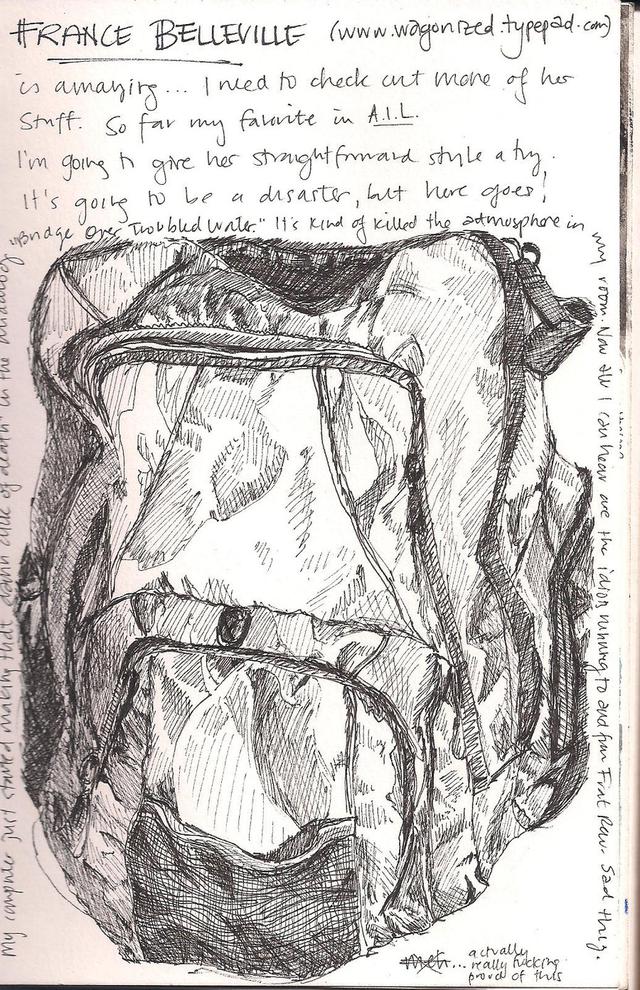 FRANCE BELLEVILLE (www.wagonized.typepad.com)
is amazing... I need to check out more of her
stuff. So far my favorite in A.I.L.
I'm going to give her straightforward style a try.
It's going to be a disaster, but here goes!
My computer just started making that damn click of death in the middle of
"Bridge Over Troubled Water." It's kind of killed the atmosphere in
my room. Now all I can hear are the idiots running to and from Frat Row. Sad thing.
meh... actually
really fucking
proud of this